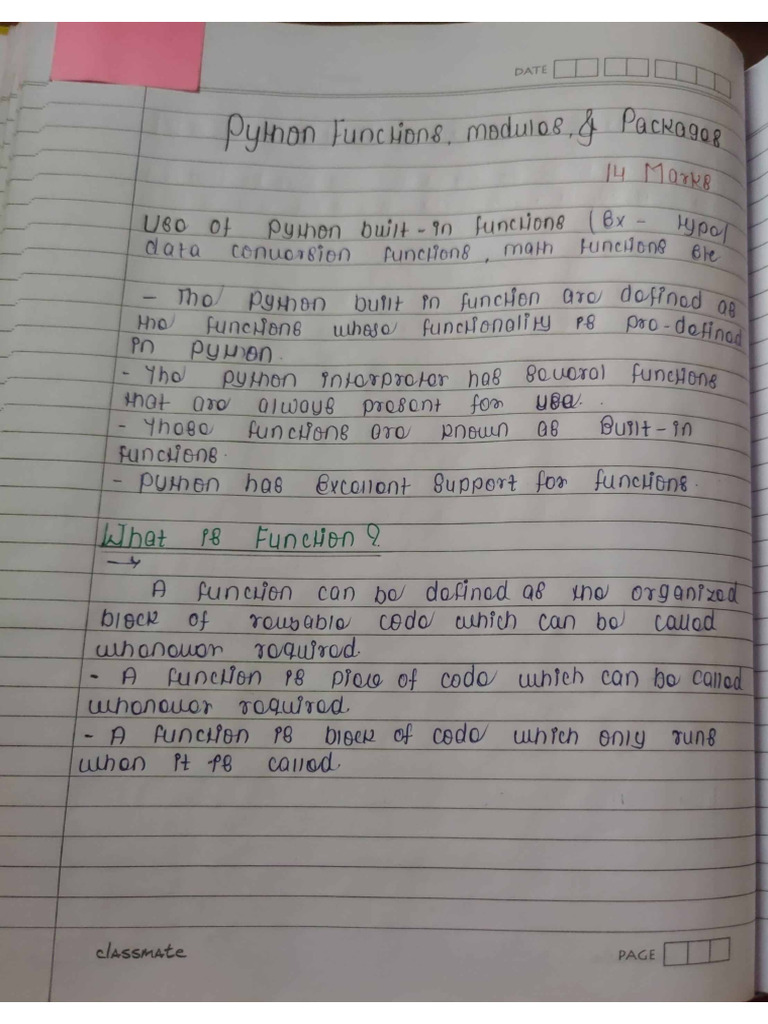 DATE
Python Functions, modules, & Packages
14 Marks
Use of python built-in functions (Ex - type/
data conversion functions, math functions etc
- The python built in function are defined as
the functions whose functionality is pre-defined
in python.
- The python interpreter has several functions
that are always present for use.
- These functions are known as Built-in
functions.
- Python has excellent support for functions.
What is Function?
→
A function can be defined as the organized
block of reusable code which can be called
whenever required.
- A function is piece of code which can be called
whenever required.
- A function is block of code which only runs
when it is called.
classmate
PAGE